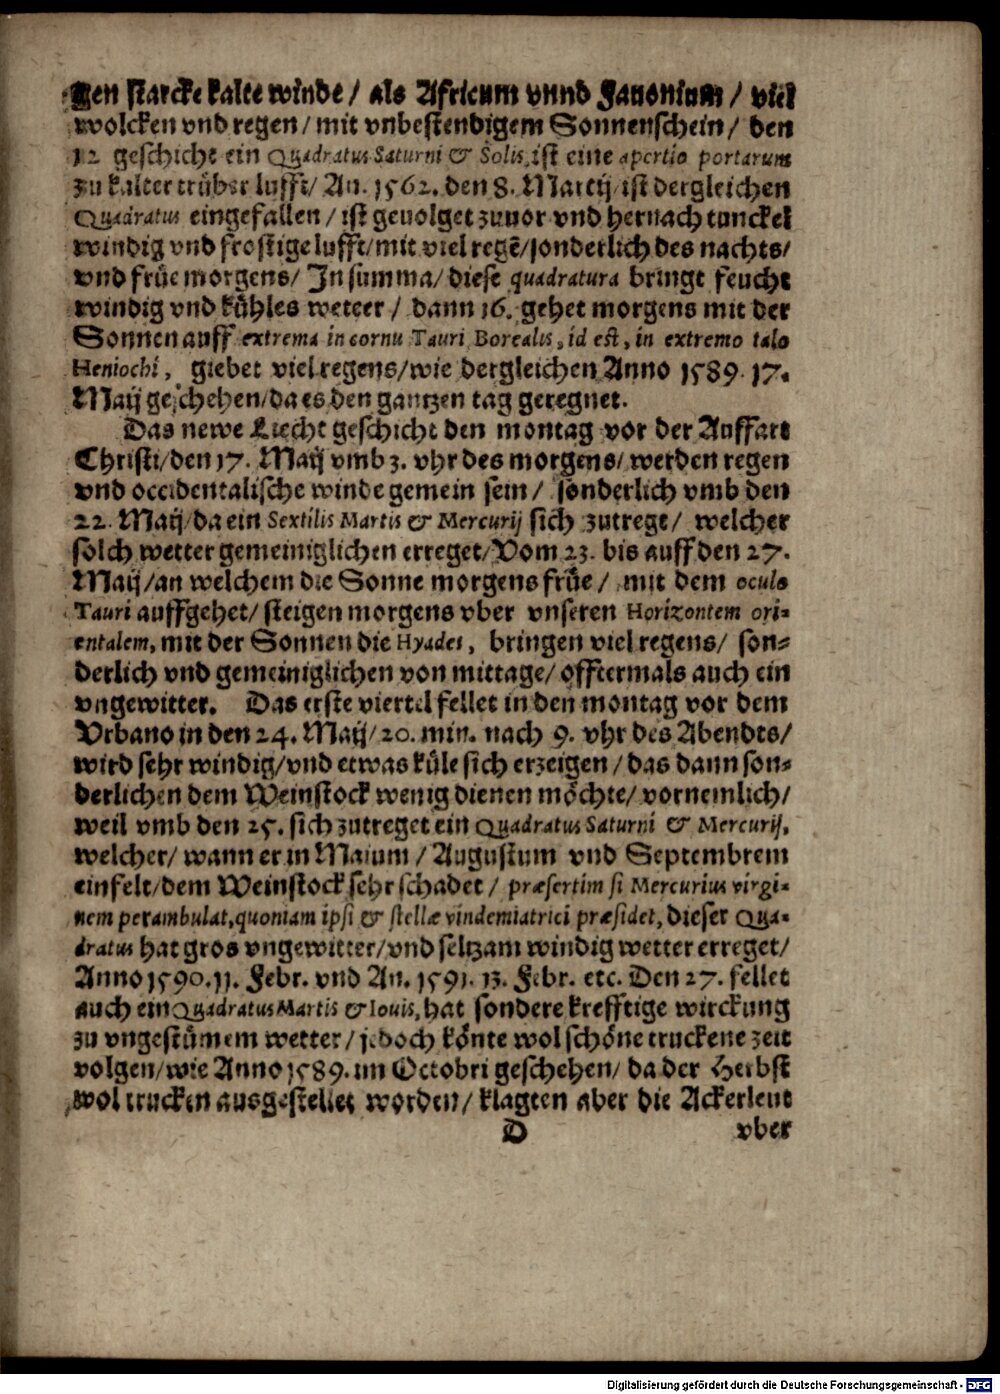 gen starcke kalte winde / als Africum vnnd Fauonium / viel
wolcken vnd regen / mit vnbestendigem Sonnenschein / den
12 geschicht ein Quadratus Saturni & Solis, ist eine apertio portarum
zu kalter trüber lufft / An. 1562. den 8. Martij ist dergleichen
Quadratus eingefallen / ist geuolget zuuor vnd hernach tunckel
windig vnd frostige lufft / mit viel regẽ / sonderlich des nachts /
vnd früe morgens / In summa / diese quadratura bringt feucht
windig vnd kühles wetter / dann 16. gehet morgens mit der
Sonnen auff extrema in cornu Tauri Borealis, id est, in extremo talo
Heniochi, giebet viel regens / wie dergleichen Anno 1589. 17.
Maij geschehen / da es den gantzen tag geregnet.
Das newe Liecht geschicht den montag vor der Auffart
Christi / den 17. Maij vmb 3. vhr des morgens / werden regen
vnd occidentalische winde gemein sein / sonderlich vmb den
22. Maij / da ein Sextilis Martis & Mercurij sich zutregt / welcher
solch wetter gemeiniglichen erreget / Vom 23. bis auff den 27.
Maij / an welchem die Sonne morgens früe / mit dem oculo
Tauri auffgehet / steigen morgens vber vnseren Horizontem ori-
entalem, mit der Sonnen die Hyades, bringen viel regens / son-
derlich vnd gemeiniglichen von mittage / offtermals auch ein
vngewitter. Das erste viertel fellet in den montag vor dem
Vrbano in den 24. Maij / 20. min. nach 9. vhr des Abendts /
wird sehr windig / vnd etwas küle sich erzeigen / das dann son-
derlichen dem Weinstock wenig dienen möchte / vornemlich /
weil vmb den 25. sich zutreget ein Quadratus Saturni & Mercurij,
welcher / wann er in Maium / Augustum vnd Septembrem
einfelt / dem Weinstock sehr schadet / præsertim si Mercurius virgi-
nem perambulat, quoniam ipsi & stellæ vindemiatrici præsidet, dieser Qua-
dratus hat gros vngewitter / vnd seltzam windig wetter erreget /
Anno 1590. 11. Febr. vnd An. 1591. 13. Febr. etc. Den 27. fellet
auch ein Quadratus Martis & Iouis, hat sondere krefftige wirckung
zu vngestümem wetter / jedoch könte wol schöne truckene zeit
volgen / wie Anno 1589. im Octobri geschehen / da der Herbst
wol trucken ausgestellet worden / klagten aber die Ackerleut
D vber
Digitalisierung gefördert durch die Deutsche Forschungsgemeinschaft - DFG